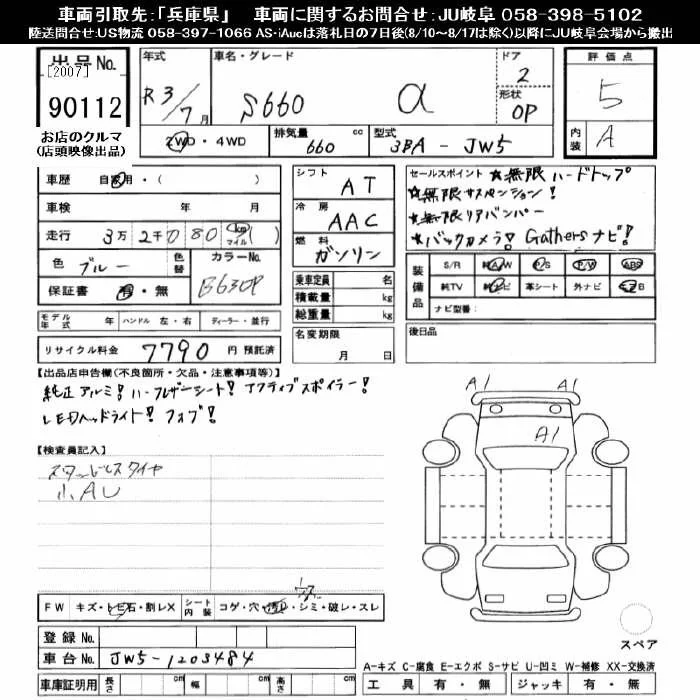 車両引取先:「兵庫県」 車両に関するお問合せ:JU岐阜 058-398-5102
陸送問合せ:US物流 058-397-1066 AS・iAucは落札日の7日後(8/10～8/17は除く)以降にJU岐阜会場から搬出
出品No. [2007]
90112
お店のクルマ
(店頭映像出品)
年式 R3/7月
車名・グレード S660 α
ドア 2
形状 OP
2WD・4WD
排気量 660 cc
型式 3BA - JW5
評価点 5
内装 A
車歴 自家用・( )
車検 年 月
走行 3万2千080 km マイル ( )
色 ブルー
色替
カラーNo. B630P
保証書 有・無
モデル年式 年 ハンドル 左・右 ディーラー・並行
リサイクル料金 7790 円 預託済
シフト AT
冷房 AAC
燃料 ガソリン
乗車定員 名
積載量 kg
総重量 kg
名変期限
月 日
セールスポイント ☆無限 ハードトップ
☆無限サスペンション!
☆無限リアバンパー
☆バックカメラ! Gathersナビ!
装備品 S/R 純A/W P/S P/W ABS
純TV 純ナビ 革シート 外ナビ エアB
ナビ型番:
後日品
【出品店申告欄(不良箇所・欠品・注意事項等)】
純正アルミ! ハーフレザーシート! アクティブスポイラー!
LEDヘッドライト! フォブ!
【検査員記入】
スタッドレスタイヤ
小AU
A1 A1
A1
FW キズ・トビ石・割レX シート内装 コゲ・穴・汚レ・シミ・破レ・スレ
登録No.
車台No. JW5-1203484
車庫証明用 長さ cm 幅 cm 高さ cm
スペア
A-キズ C-腐食 E-エクボ S-サビ U-凹ミ W-補修 XX-交換済
工具 有・無 ジャッキ 有・無